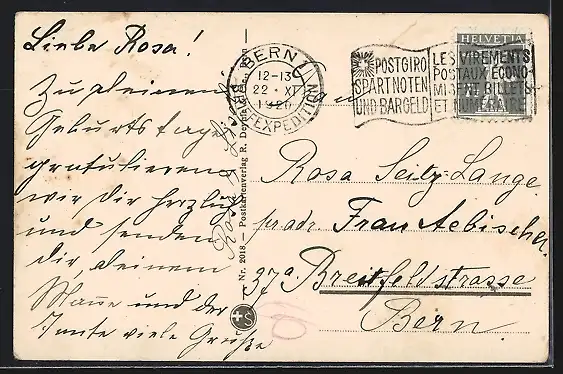 Liebe Rosa!
Zu deinem
Geburtstage
gratulieren
wir dir herzlich
und senden
dir, deinem
Manne und der
Tante viele Grüsse
Rosa
Nr. 2018. — Postkartenverlag R. Deyhle, Bern
BERN 1
12-13
22. XI
1926
BRIEFEXPEDITION
POSTGIRO
SPART NOTEN
UND BARGELD
LES VIREMENTS
POSTAUX ECONO-
MISENT BILLETS
ET NUMERAIRE
HELVETIA
Rosa Seitz-Lange
p. adr. Frau Aebischer
97a. Breitfeldstrasse
Bern.